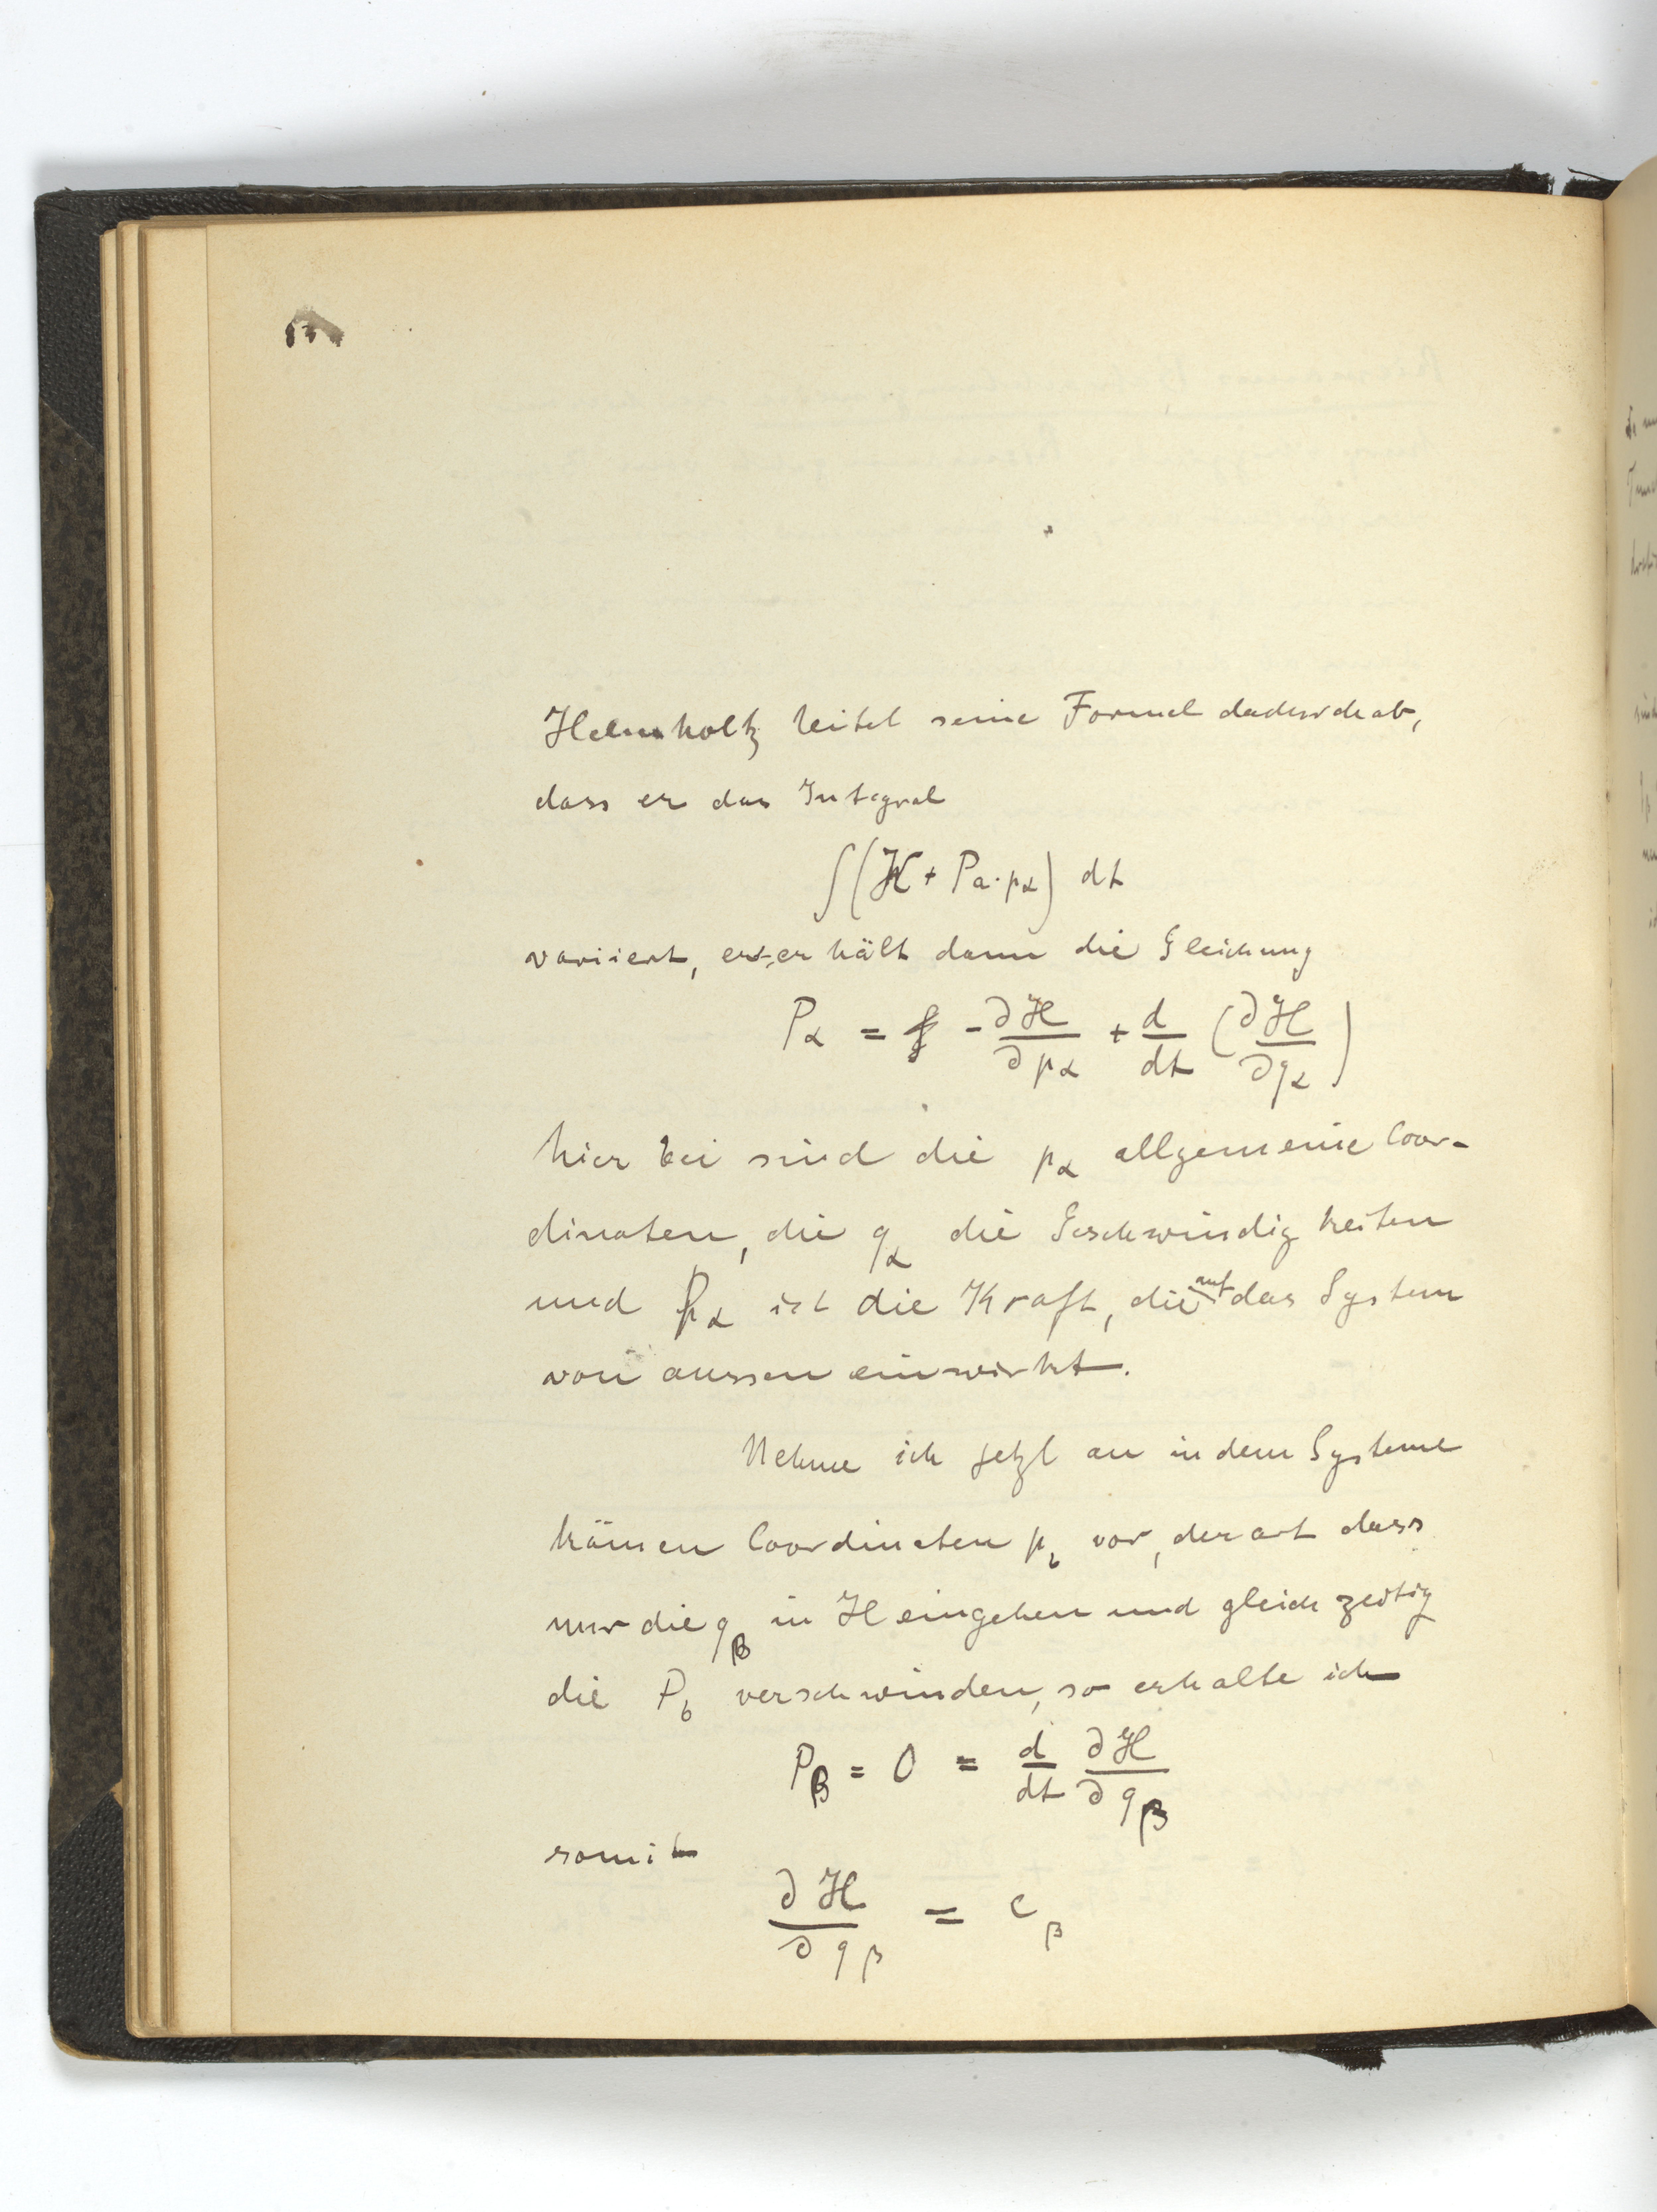 Helmholtz leitet seine Formel dadurch ab,
dass er das Integral
∫(H + Pα · pα) dt
variiert, er erhält dann die Gleichung
Pα = - ∂H/∂pα + d/dt (∂H/∂qα)
hierbei sind die pα allgemeine Coor-
dinaten, die qα die Geschwindigkeiten
und Pα ist die Kraft, die auf das System
von aussen einwirkt.
Nehme ich jetzt an in dem Systeme
kämen Coordinaten p_b vor, derart dass
nur die qβ in H eingehen und gleichzeitig
die P_b verschwinden, so erhalte ich
Pβ = 0 = d/dt ∂H/∂qβ
somit
∂H/∂qβ = cβ